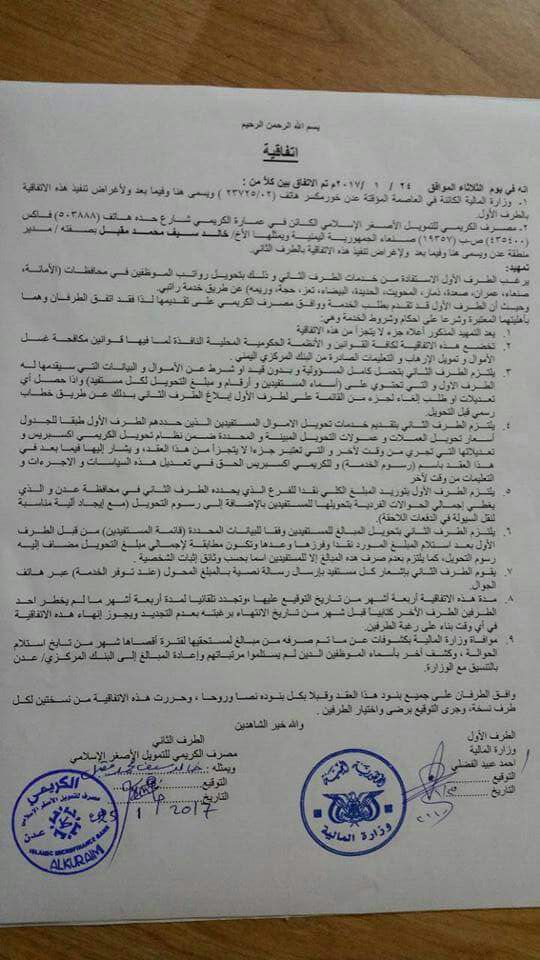 بسم الله الرحمن الرحيم
اتفاقية
انه في يوم الثلاثاء الموافق ٢٤ / ١ /٢٠١٧م تم الاتفاق بين كلاً من :
١- وزارة المالية الكائنة في العاصمة المؤقتة عدن خورمكسر هاتف (٢٣٧٢٥/٠٢ ) ويسمى هنا وفيما بعد ولأغراض تنفيذ هذه الاتفاقية
بالطرف الأول.
٢- مصرف الكريمي للتمويل الأصغر الإسلامي الكائن في عمارة الكريمي شارع حده هـاتف (٥٠٣٨٨٨) فـاكس
(٤٣٥٤٠٠) ص.ب (١٩٣٥٧) صنعاء الجمهورية اليمنية ويمثلها الأخ/ خالد سيف محمـد مقبـل بصـفته / مـدير
منطقة عدن ويسمى هنا وفيما بعد ولإغراض تنفيذ هذه الاتفاقية بالطرف الثاني.
تمهيد:
يرغب الطرف الأول الاستفادة من خدمات الطرف الثاني و ذلك بتحويل رواتب الموظفين في محافظات (الأمانة،
صنعاء، عمران، صعدة، ذمار، المحويت، الحديدة، البيضاء، تعز، حجة، وريمه) عن طريق خدمة راتبي.
وحيث أن الطرف الأول قد تقدم بطلب الخدمة ووافق مصرف الكريمي على تقديمها لذا فقد اتفق الطرفان وهما
بأهليتهما المعتبرة وشرعا على أحكام وشروط الخدمة وهي:
١. يعد التمهيد المذكور أعلاه جزء لا يتجزأ من هذه الاتفاقية
٢. تخضع هذه الاتفاقية لكافة القوانين و الأنظمة الحكومية المحلية النافذة لما فيها قوانين مكافحة غسل
الأموال و تمويل الإرهاب و التعليمات الصادرة من البنك المركزي اليمني .
٣. يلتزم الطرف الثاني بتحمل كامل المسؤولية و بدون قيد أو شرط عن الأموال و البيانات التي سيقدمها له
الطرف الأول و التي تحتوي على (أسماء المستفيدين و أرقام و مبلغ التحويل لكل مستفيد) وإذا حصل أي
تعديلات او طلب إلغاء لجزء من القائمة على لطرف الأول إبلاغ الطرف الثاني بذلك عن طريق خطاب
رسمي قبل التحويل.
٤. يلتزم الطرف الثاني بتقديم خدمات تحويل الاموال المستفيدين الذين حددهم الطرف الأول طبقا للجدول
أسعار تحويل العملات و عمولات التحويل المبينة و المحددة ضمن نظام تحويل الكريمي اكسبريس و
تعديلاتها التي تجري من وقت لأخر و التي تعتبر جزءا لا يتجزأ من هذا العقد، و يشار إليها فيما بعد في
هذا العقد باسم (رسوم الخدمة) و للكريمي اكسبريس الحق في تعديل هذه السياسات و الاجراءات و
التعليمات من وقت لأخر
٥. يلتزم الطرف الأول بتوريد المبلغ الكلي نقدا للفرع الذي يحدده الطرف الثاني في محافظة عدن و الذي
يغطي إجمالي الحوالات الفردية بتحويلها للمستفيدين بالإضافة إلى رسوم التحويل (مع إيجاد آلية مناسبة
لنقل السيولة في الدفعات اللاحقة)
٦. يلتزم الطرف الثاني بتحويل المبالغ للمستفيدين وفقا للبيانات المحددة (قائمة المستفيدين) من قبل الطرف
الأول بعد استلام المبلغ المورد نقدا وفرزها وعدها وتكون مطابقة لإجمالي مبلغ التحويل مضاف إليه
رسوم التحويل، كما يلتزم بعدم صرف هذه المبالغ إلا للمستفيدين اسما بحسب وثائق إثبات الشخصية .
٧. يقوم الطرف الثاني بإشعار كل مستفيد بإرسال رسالة نصية بالمبلغ المحول (عند توفر الخدمة) عبر هاتف
الجوال.
٨. مدة هذه الاتفاقية أربعة أشهر من تاريخ التوقيع عليها ،وتجدد تلقائيا لمدة أربعة أشهر ما لم يخطر احد
الطرفين الطرف الأخر كتابياً قبل شهر من تاريخ الانتهاء برغبته بعدم التجديد ويجوز إنهاء هذه الاتفاقية
في أي وقت بناء على رغبة الطرفين.
٩. موافاة وزارة المالية بكشوفات عن ما تم صرفه من مبالغ لمستحقيها لفترة أقصاها شهر من تايخ استلام
الحوالة ، وكشف أخر بأسماء الموظفين الدين لم يستلموا مرتباتهم وإعادة المبالغ إلى البنك المركزي/ عدن
بالتنسيق مع الوزارة.
وافق الطرفان على جميع بنود هذا العقد وقبلا بكل بنوده نصا وروحا ، وحررت هذه الاتفاقية من نسختين لكل
طرف نسخة، وجرى التوقيع برضى واختيار الطرفين .
والله خير الشاهدين
الطرف الأول
وزارة المالية
احمد عبيد الفضلي
التوقيع
التاريخ
الجمهورية اليمنية
وزارة المالية
الطرف الثاني
مصرف الكريمي للتمويل الأصغر الإسلامي
ويمثله خالد سيف محمد مقبل
التوقيع
التاريخ 25 / 1 / 2017
الكريمي
مصرف للتمويل الأصغر الإسلامي
عدن
ISLAMIC MICROFINANCE BANK
ALKURAIMI